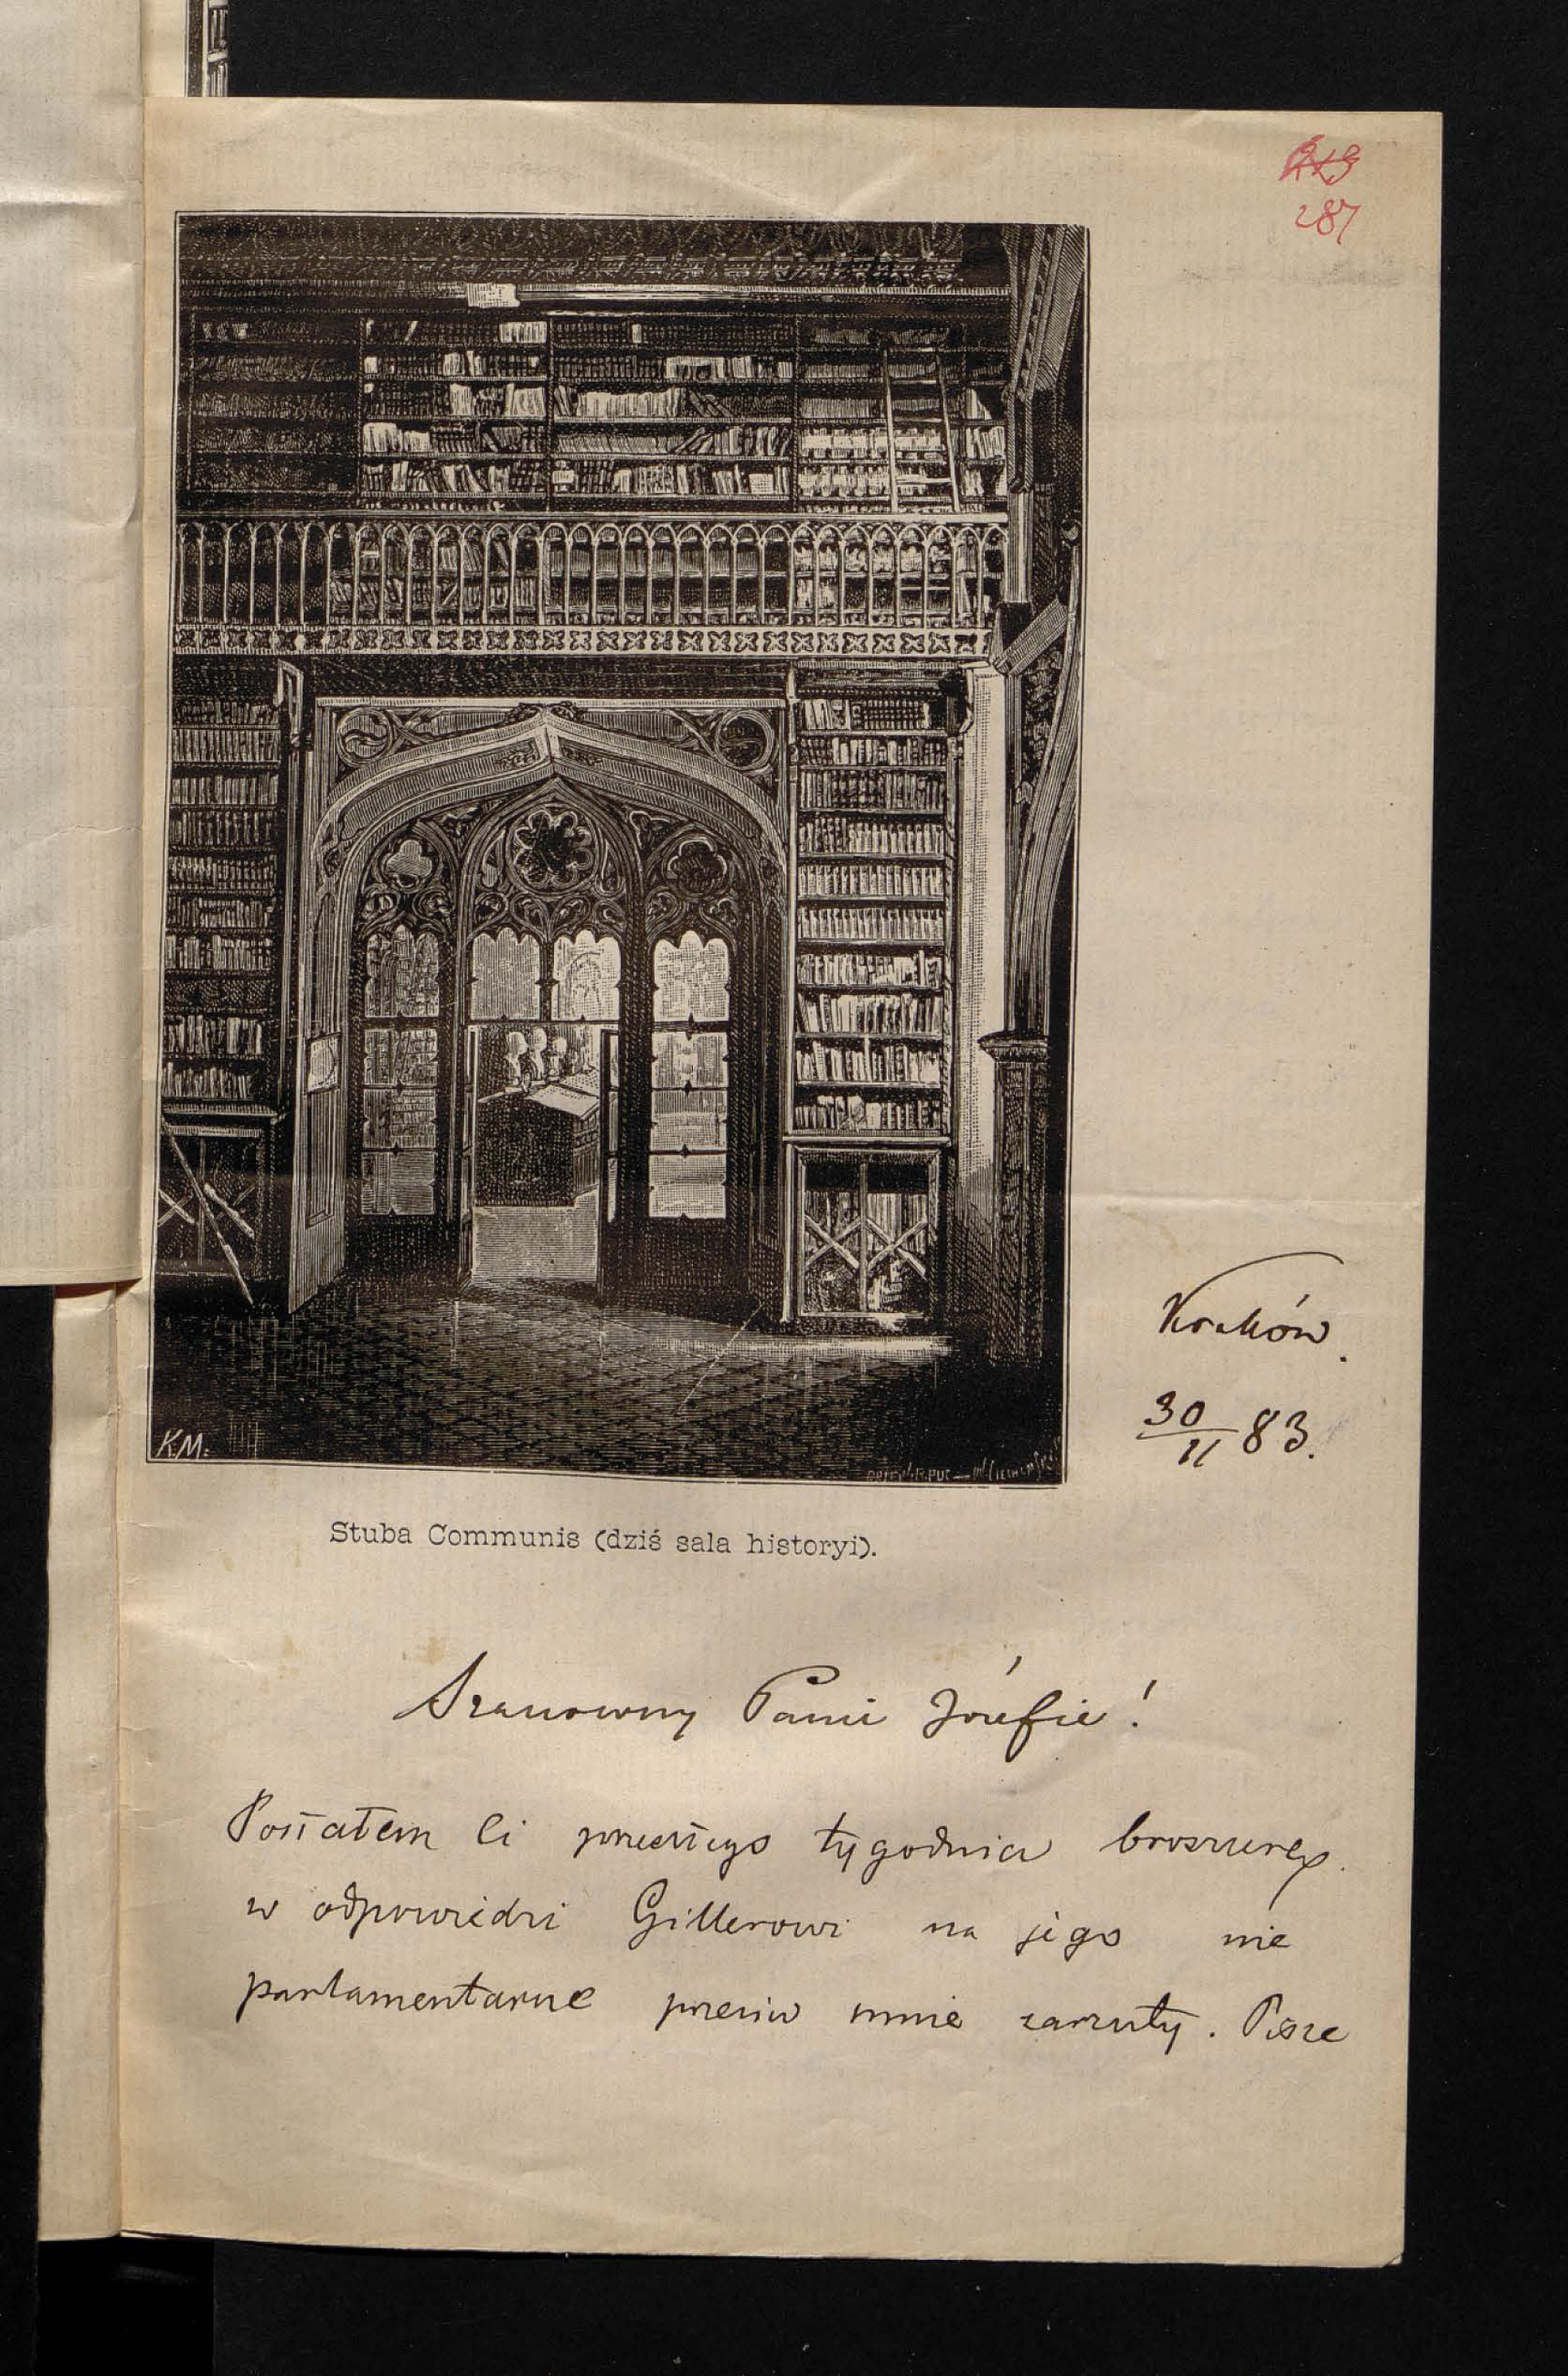 287
Kraków.
30/11 83.
KM.
Stuba Communis (dziś sala historyi).
Szanowny Panie Józefie!
Posłałem Ci przeszłego tygodnia broszurę
w odpowiedzi Gillerowi na jego nie
parlamentarne przeciw mnie zarzuty. Piszę